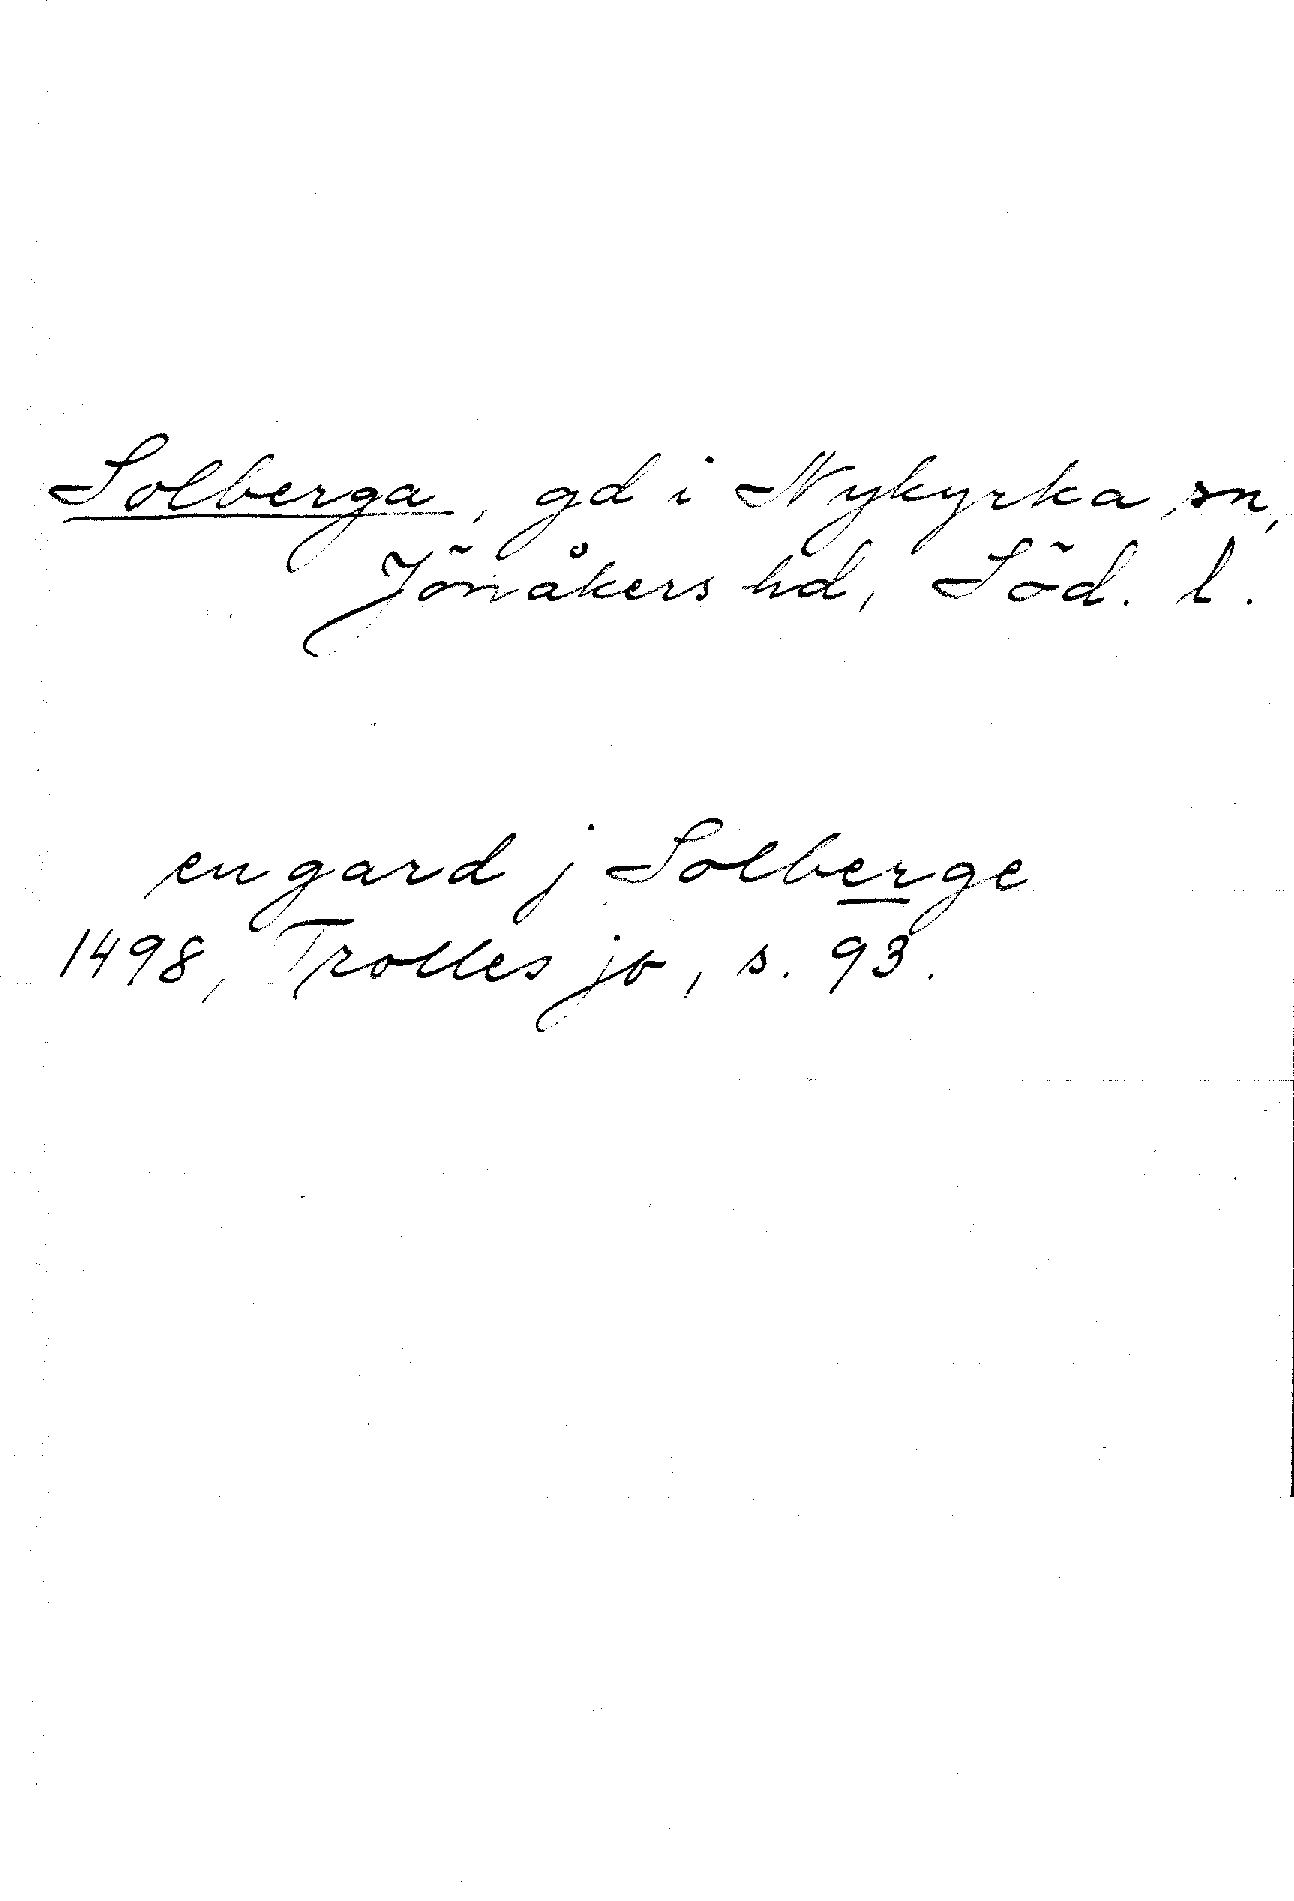 Solberga, gd i Nykyrka sn,
Jönåkers hd, Söd. l.
en gard j Solberge
1498, Trolles jb, s. 93.